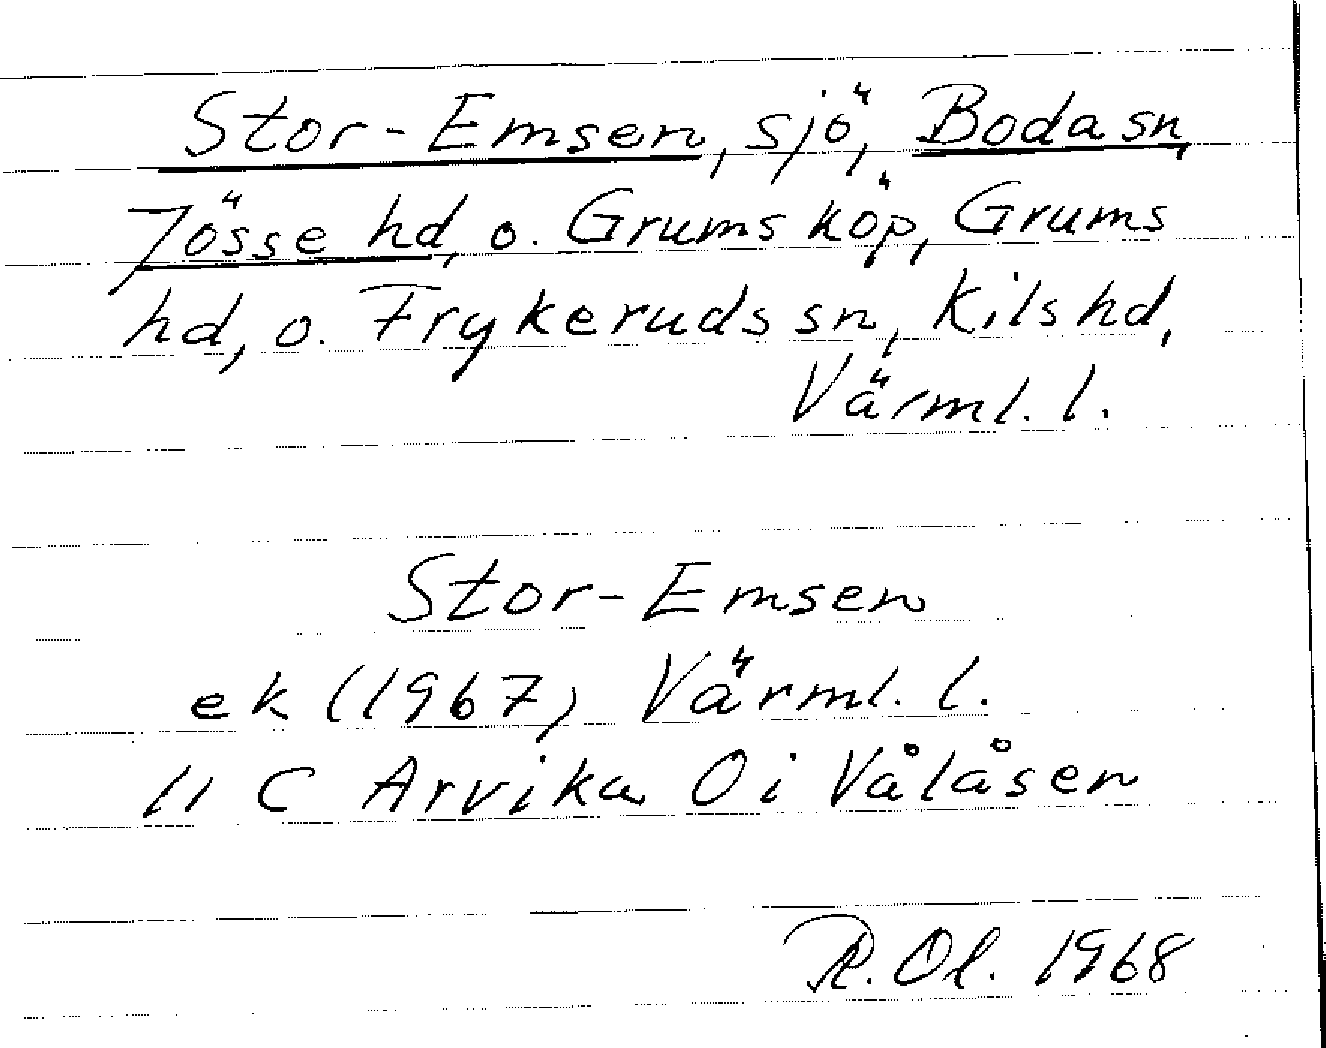 Stor-Emsen, sjö, Boda sn,
Jösse hd, o. Grums köp, Grums
hd, o. Frykeruds sn, Kils hd,
Värml. l.
Stor-Emsen
ek (1967) Värml. l.
11 C Arvika 0 i Vålåsen
R. Ol. 1968